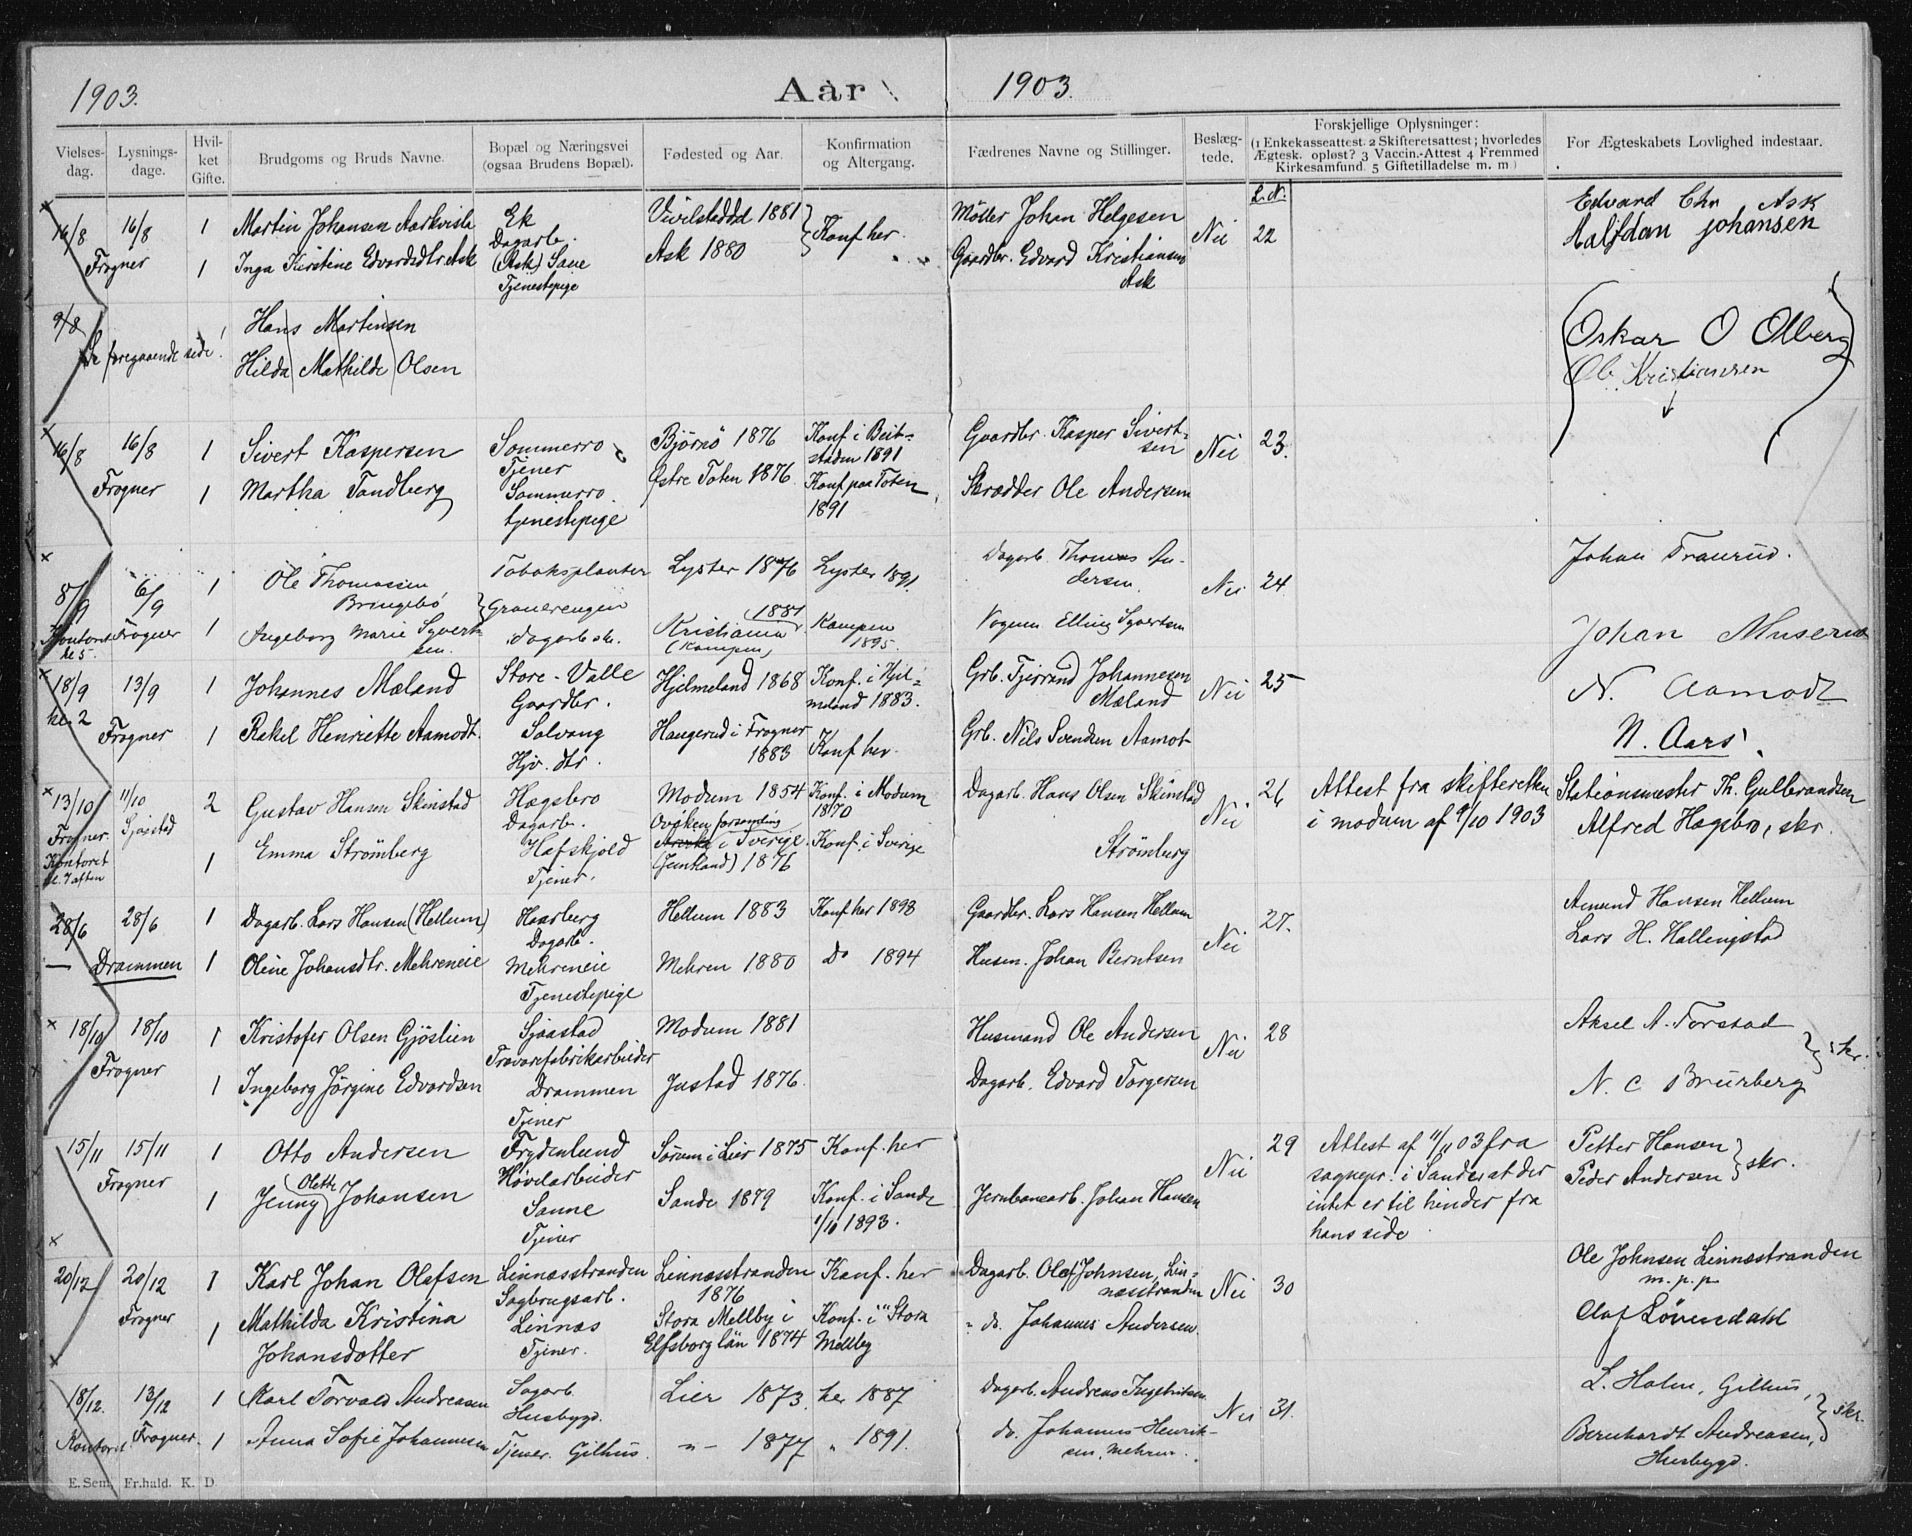 1903.
Aar
1903.
Vielses-dag.
Lysnings-dage.
Hvil-ket Gifte.
Brudgoms og Bruds Navne.
Bopæl og Næringsvei (ogsaa Brudens Bopæl).
Fødested og Aar.
Konfirmation og Altergang.
Fædrenes Navne og Stillinger.
Beslæg-tede.
Forskjellige Oplysninger: (1 Enkekasseattest. 2 Skifteretsattest; hvorledes Ægtesk. opløst? 3 Vaccin.-Attest 4 Fremmed Kirkesamfund. 5 Giftetilladelse m. m)
For Ægteskabets Lovlighed indestaar.
L.N.
16/8 16/8 1 Martin Johansen Ek Vivilstaddal 1881 Konf her. Møller Johan Helgesen Nei 22 Edvard Chr Ask
Dagarb. Halfdan Johansen
Frogner 1 Inga Kirstine Edvardsdtr. Ask (Ask) Sane Ask 1880 Gaardbr. Edvard Kristiansen
Tjenestepige Ask
9/8 Hans Martinsen (Oskar O Olberg)
Se foregaaende side! Hilda Mathilde Olsen Ole Kristiansen
16/8 16/8 1 Sivert Kaspersen Sommerro Bjørnø 1876 Konf. i Beit- Gaardbr. Kasper Sivert- Nei 23.
Tjener staden 1891 sen
Frogner 1 Martha Tandberg Sommerro Østre Toten 1876 Konf paa Toten Skrædder Ole Andersen
tjenestepige 1891
8/9 6/9 1 Ole Thomassen Tobaksplanter Lyster 1876 Lyster 1891. Dagarb. Thomas An- Nei 24 Johan Tranrud.
Bringebø dersen
Kontoret Frogner 1 Ingeborg Marie Syvert- Granerengen Kristiania 1881 Kampen Vognm Elling Syvertsen Johan Muserud
kl 5. sen. dagarbske. (Kampen) 1895.
18/9 13/9 1 Johannes Mæland Store-Valle Hjelmeland 1868 Konf. i Hjel- Grb. Tjerrand Johannesen Nei 25 N. Aamodt
kl. 2 Gaardbr. meland 1883. Mæland
Frogner 1 Rakel Henriette Aamodt. Solvang Haugerud i Frogner Konf her. Grb. Nils Svendsen Aamot N. Aars.
Hjv. dtr. 1883
13/10 11/10 2 Gustav Hansen Skinstad Hægsbro Modum 1854 Konf. i Modum Dagarb. Hans Olsen Skinstad Nei 26 Attest fra skifteretten Stationsmester Th. Gulbrandsen
Frogner Sjåstad Dagarb. 1870 i modum af 9/10 1903 Alfred Hægsbro, skr.
Kontoret 1 Emma Strömberg Hafskjold Oviken forsamling i Sverige Konf. i Sverige Strömberg
kl. 7 aften Tjener. (Jemtland) 1876
28/6 28/6 1 Dagarb. Lars Hansen (Hellum) Haarberg Hellum 1883 Konf her 1898 Gaardbr. Lars Hansen Hellum Nei 27. Amund Hansen Hellum
Dagarb. Lars H. Hallingstad
— Drammen 1 Oline Johansdtr. Mehreneie Mehreneie Mehren 1880 Do 1894 Husm. Johan Berntsen
Tjenestepige
18/10 18/10 1 Kristofer Olsen Gjöslien Sjaastad Modum 1881 Husmand Ole Andersen Nei 28 Aksel A. Torstad
Trævarefabrikarbeider skr.
Frogner 1 Ingeborg Jørgine Edvardsen Drammen Justad 1876. Dagarb. Edvard Torgersen N. C Brurberg
Tjener
15/11 15/11 1 Otto Andersen Frydenlund Sørum i Lier 1875 Konf. her Nei 29 Attest af 11/11 03 fra Petter Hansen
Høvlarbeider sognepr. i Sande, at der Peder Andersen skr.
Frogner 1 Jenny Olette Johansen Sanne Sande 1879 Konf. i Sande Jernbanearb. Johan Hansen intet er til hinder fra
Tjener 1/10 1893. hans side
20/12 20/12 1 Karl Johan Olafsen Linnæsstranden Linnæsstranden Konf. her Dagarb. Olaf Johnsen, Lin- Nei 30 Ole Johnsen Linnæstranden
Sagbrugsarb. 1876 næsstranden m. p. p.
Frogner 1 Mathilda Kristina Linnæs Stora Mellby i Konf. i Stora " do. Johannes Andersen. Olaf Løvendahl
Johansdotter Tjener. Elfsborg län 1874 Mellby
18/12. 13/12 1 Karl Torvald Andreasen Sagarb. Lier 1873. her 1887 Dagarb. Andreas Ingebritsen Nei 31. L. Holm, Gilhus,
Husbygd. skr.
Kontoret Frogner. 1 Anna Sofie Johannesen Tjener. Gilhus. -"- 1877 " 1891. do. Johannes Henrik- Bernhardt Andreasen,
sen, Mehren. Husbygd.
E. Sem. Fr.hald. K. D.